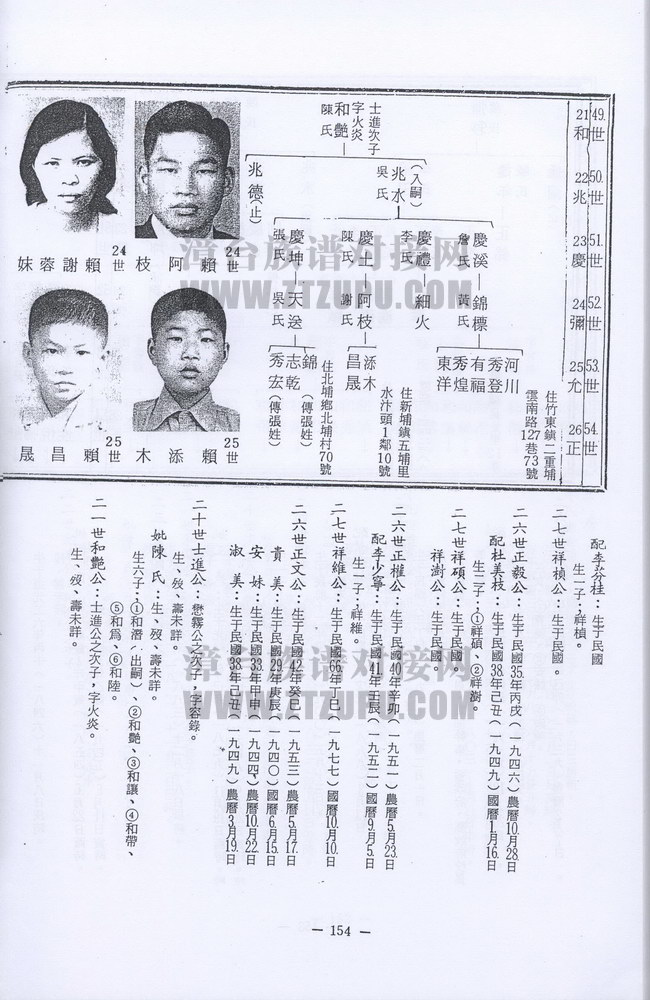 49.世 21和
50.世 22兆
51.世 23慶
52.世 24彌
53.世 25允
54.世 26正
士進次子
字火炎
和艷
陳氏
(入嗣)
兆水
吳氏
兆德(止)
慶溪
詹氏
慶禮
李氏
慶土
陳氏
慶坤
張氏
錦標
黃氏
細火
阿枝
謝氏
天送
吳氏
河川
秀登
有福
秀煌
東洋
添木
昌晟
錦(傳張姓)
志乾
秀宏(傳張姓)
住竹東鎮二重埔
雲南路127巷73號
住新埔鎮五埔里
水汴頭1鄰10號
住北埔鄉北埔村70號
24世 賴阿枝
24世 賴謝蓉妹
25世 賴添木
25世 賴昌晟
漳台族谱对接网
WWW.ZTZUPU.COM
配李芬桂：生于民國
生一子；祥楨
二七世祥楨公：生于民國。
二六世正毅公：生于民國35.年丙戌(一九四六)農曆10.月28.日
配杜美枝：生于民國38.年己丑(一九四九)國曆1.月16.日
生二子；①祥碩、②祥澍。
二七世祥碩公：生于民國。
祥澍公：生于民國。
二六世正權公：生于民國40.年辛卯(一九五一)農曆5.月23.日
配李少寧：生于民國41.年壬辰(一九五二)國曆9.月5.日
生一子；祥維。
二七世祥維公：生于民國66.年丁巳(一九七七)國曆10.月10.日
二六世正文公：生于民國42.年癸巳(一九五三)農曆5.月17.日
貴美：生于民國29.年庚辰(一九四〇)國曆6.月15.日
安妹：生于民國33.年甲申(一九四四)農曆10.月22.日
淑美：生于民國38.年己丑(一九四九)農曆3.月19.日
二十世士進公：懋霧公之次子，字容錄。
生、歿、壽未詳。
妣陳氏：生、歿、壽未詳。
生六子；①和潛(出嗣)、②和艷、③和讓、④和帶、
⑤和爲、⑥和陸。
二一世和艷公：士進公之次子，字火炎。
生、歿、壽未詳。
漳台族谱对接网
WWW.ZTZUPU.COM
— 154 —